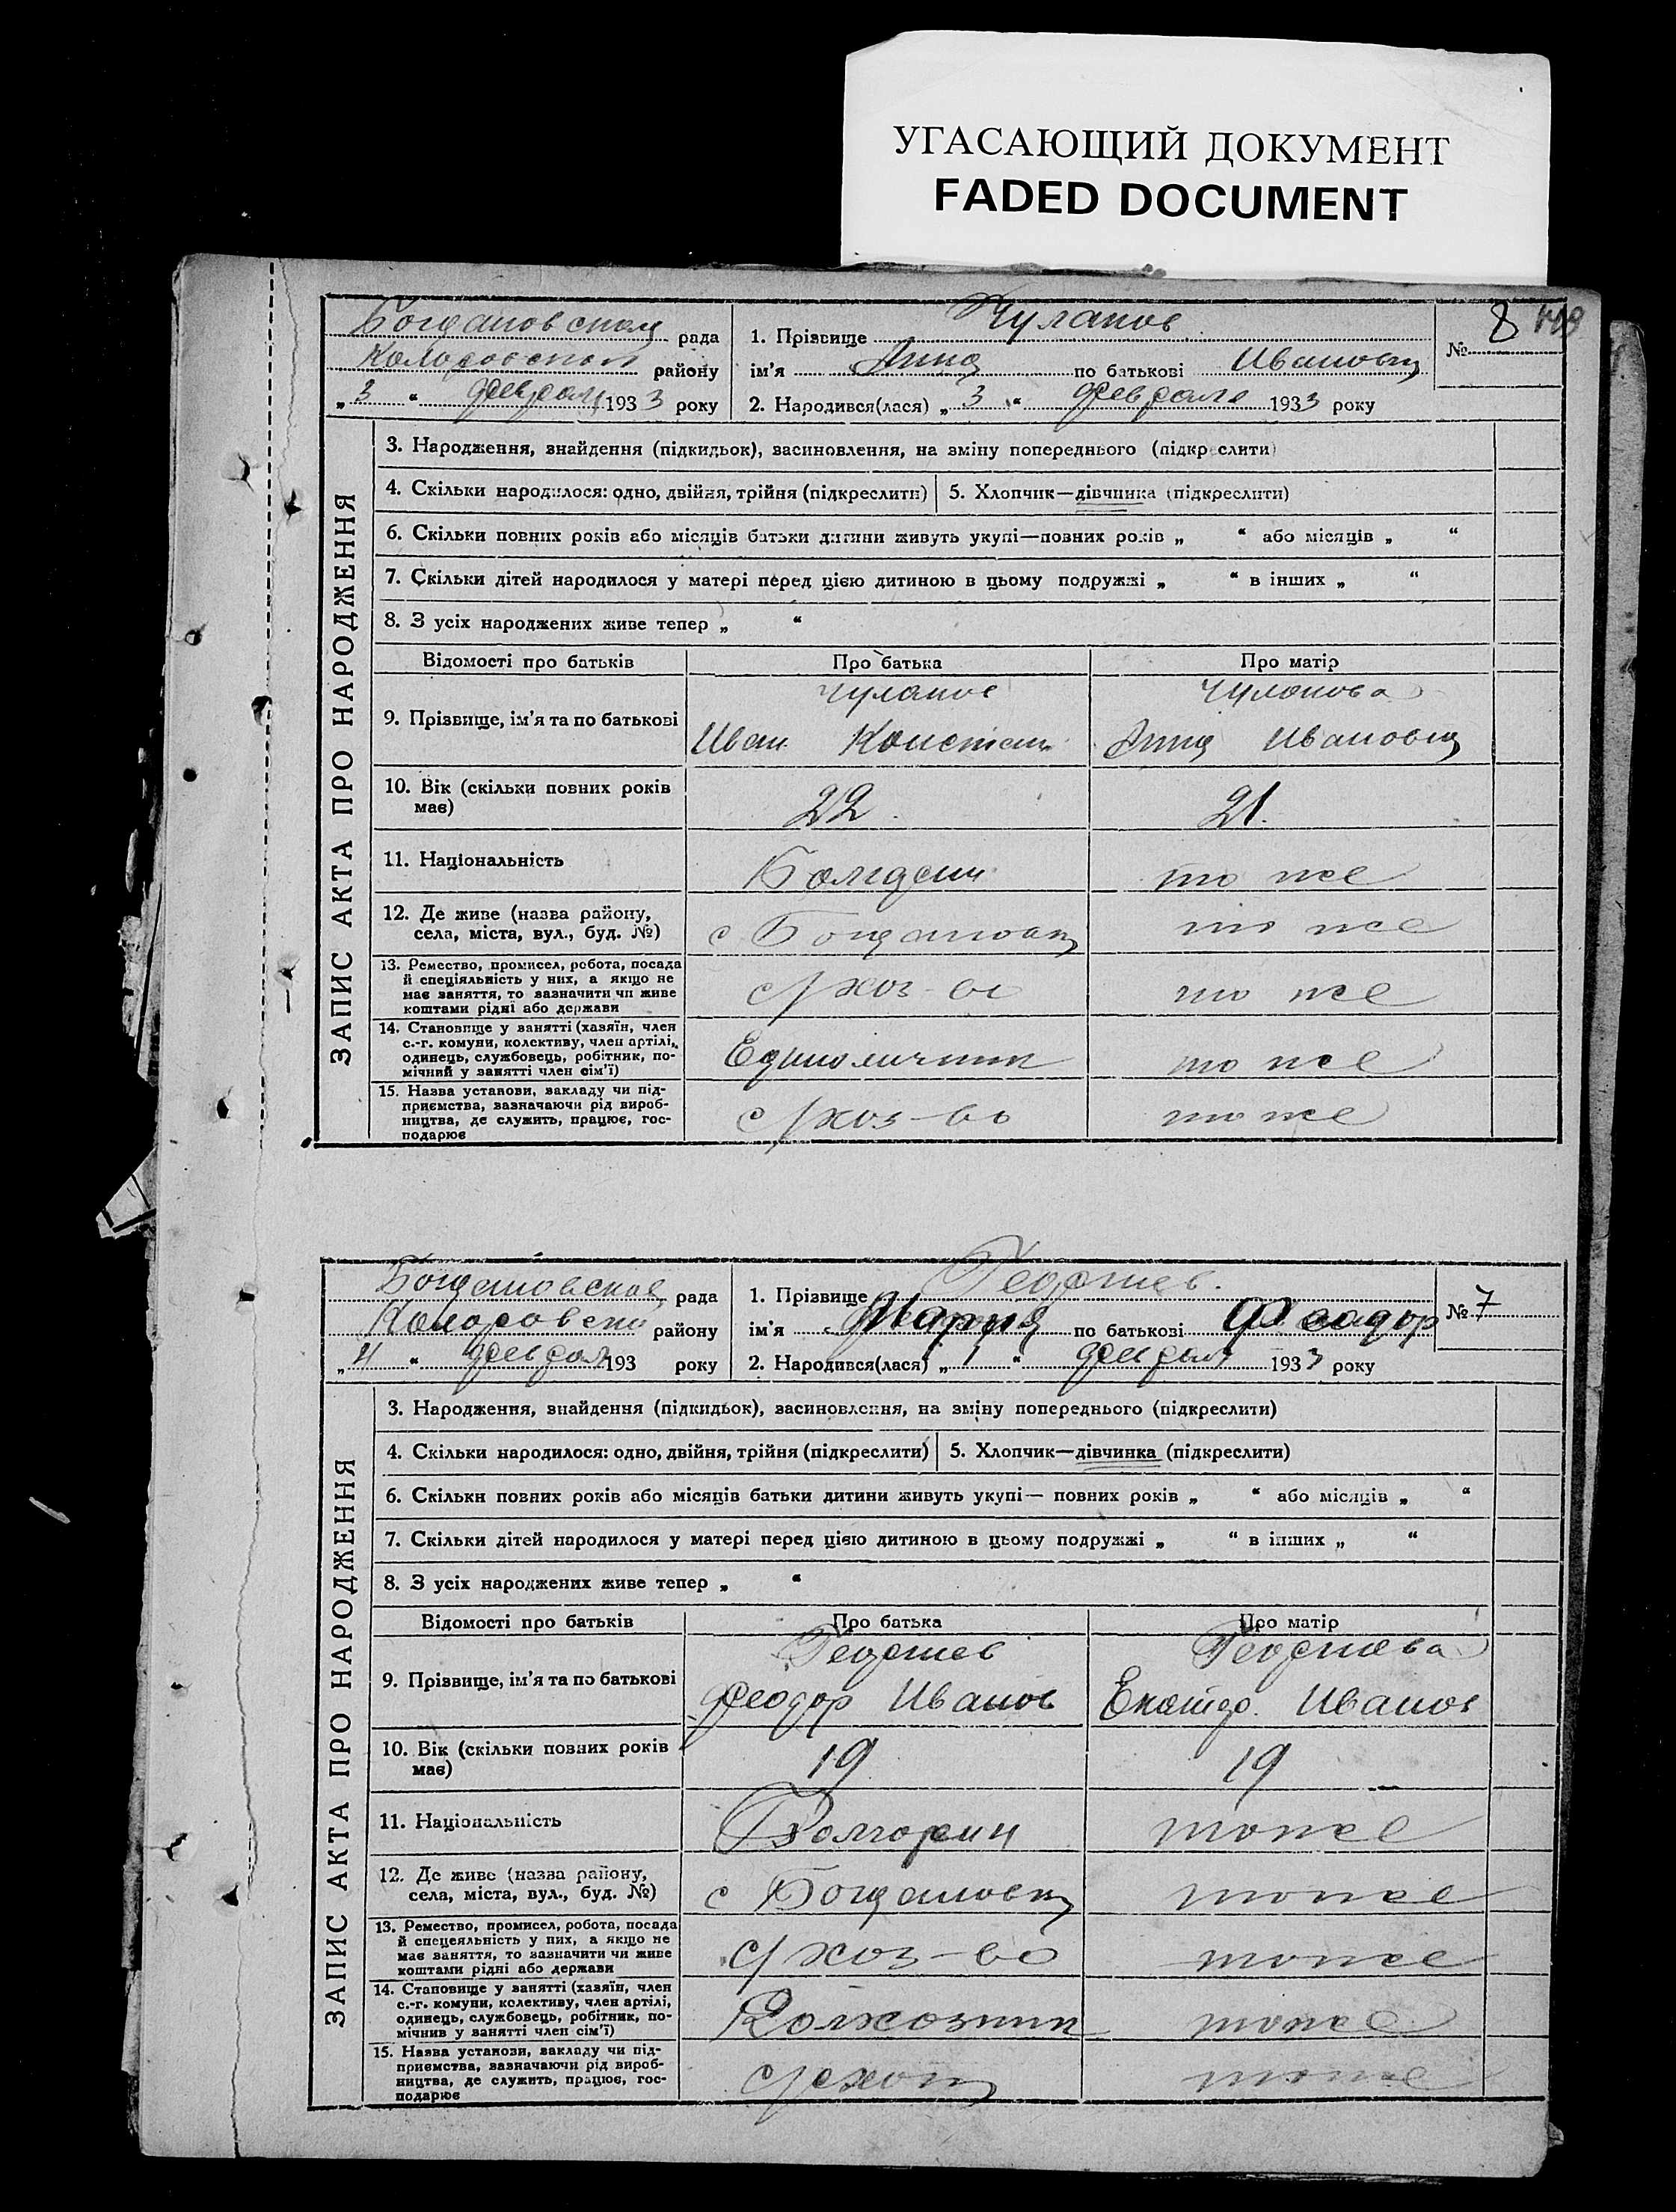 УГАСАЮЩИЙ ДОКУМЕНТ
FADED DOCUMENT
рада
району
„ 3 “ 193 3 року
1. Прізвище Чулаков
ім'я Анна по батькові Ивановна
2. Народився(лася) „ 3 “ февраля 1933 року
№ 8
ЗАПИС АКТА ПРО НАРОДЖЕННЯ
3. Народження, знайдення (підкидьок), засиновлення, на зміну попереднього (підкреслити)
4. Скільки народилося: одно, двійня, трійня (підкреслити)
5. Хлопчик—дівчинка (підкреслити)
6. Скільки повних років або місяців батьки дитини живуть укупі—повних років „ “ або місяців „ “
7. Скільки дітей народилося у матері перед цією дитиною в цьому подружжі „ “ в інших „ “
8. З усіх народжених живе тепер „ “
Відомості про батьків Про батька Про матір
9. Прізвище, ім'я та по батькові
Иван Констан
Анна Ивановна
10. Вік (скільки повних років
має)
22
21.
11. Національність
то же
12. Де живе (назва району,
села, міста, вул., буд. №)
с
то же
13. Ремество, промисел, робота, посада
й спеціяльність у них, а якщо не
має заняття, то зазначити чи живе
коштами рідні або держави
с/хоз-во
то же
14. Становище у занятті (хазяїн, член
с.-г. комуни, колективу, член артілі,
одинець, службовець, робітник, по-
мічний у занятті член сім'ї)
Единоличник
то же
15. Назва установи, закладу чи під-
приємства, зазначаючи рід вироб-
ництва, де служить, працює, гос-
подарює
с/хоз-во
то же
рада
району
„ 4 “ 193 року
1. Прізвище Георгиев.
ім'я Мария по батькові Феодор
2. Народився(лася) „ 1 “ февраля 1933 року
№ 7
ЗАПИС АКТА ПРО НАРОДЖЕННЯ
3. Народження, знайдення (підкидьок), засиновлення, на зміну попереднього (підкреслити)
4. Скільки народилося: одно, двійня, трійня (підкреслити)
5. Хлопчик—дівчинка (підкреслити)
6. Скільки повних років або місяців батьки дитини живуть укупі— повних років „ “ або місяців „ “
7. Скільки дітей народилося у матері перед цією дитиною в цьому подружжі „ “ в інших „ “
8. З усіх народжених живе тепер „ “
Відомості про батьків Про батька Про матір
9. Прізвище, ім'я та по батькові
Георгиев
Феодор Иванов
Георгиева
Екатер. Иванов
10. Вік (скільки повних років
має)
19
19
11. Національність
Болгорин
то же
12. Де живе (назва району,
села, міста, вул., буд. №)
с Богдановка
то же
13. Ремество, промисел, робота, посада
й спецеяльність у них, а якщо не
має заняття, то зазначити чи живе
коштами рідні або держави
с/хоз-во
то же
14. Становище у занятті (хазяїн, член
с.-г. комуни, колективу, член артілі,
одинець, службовець, робітник, по-
мічнив у занятті член сім'ї)
Колхозник
то же
15. Назва установи, закладу чи під-
приємства, зазначаючи рід вироб-
ництва, де служить, працює, гос-
подарює
то же